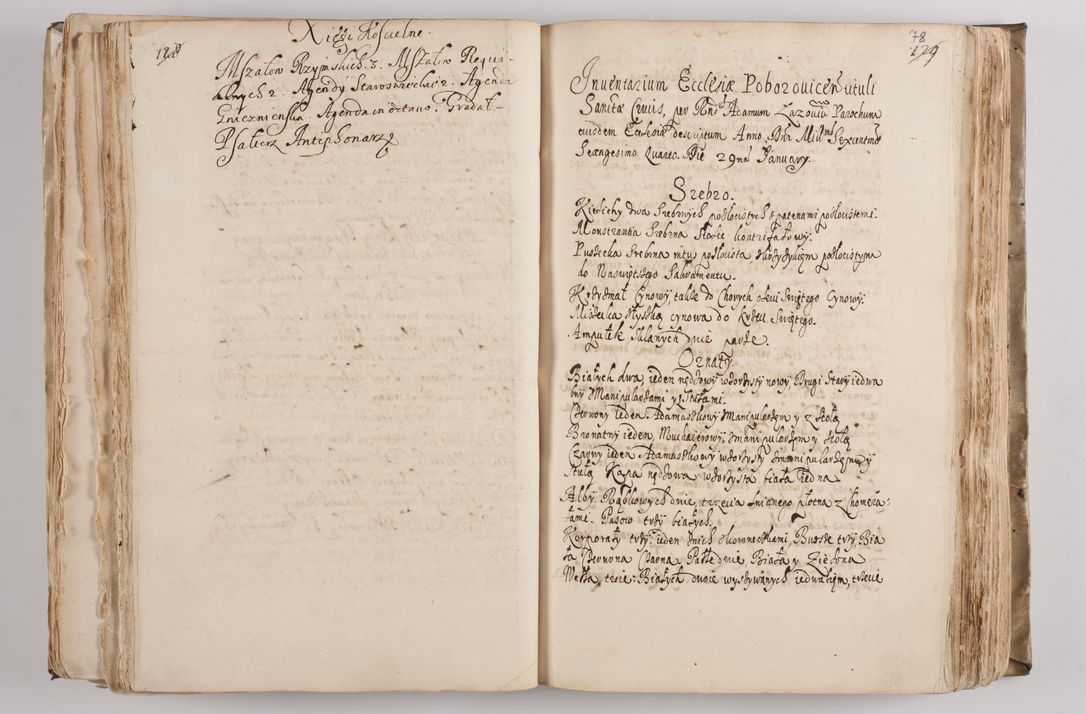 128
Xięgi Kościelne.
Mszałow Rzymskich. 3. Mszałow Requi-
alnych 2. Agendy Staroswieckie 2. Agenda
Gniezninska. Agenda in octavo. Gradał-
Psalterz Antiphonarz
78
129
Inventarium Ecclesiæ Poborovicen tituli
Sanctæ Crucis, per Rndum Adamum Parochum
eiusdem Ecclesiæ descriptum Anno Dni Millmo Sexcentmo
Sexagesimo Quarto. Die 29na January.
Srebro.
Kielichy dwa Srebrnych pozłocistych z patenami pozłocistemi.
Monstrantia Srebrna
Puszecka srebrna pozłocista pozłocistym
do Naswiętszego Sakramentu.
Krzyzmał Cynowy, także do Chorych olevi Swiętego Cynowy.
Miseczka cynowa do krztu Swiętego.
Ampułek sklanych dwie parze.
Ornaty.
Białych dwa, ieden wzorzysty nowy, Drugi Stary iedwa
bny z Manipularzami y z Stułami.
Czerwony ieden Adamaszkowy z Manipularzem y z stołą
Bronatny ieden, Muchaierowy, z manipularzem y stołą
Czarny ieden Adamaszkowy wzorzysty z manipularzem y
stułą Kapa wzorzysta biała iedna
Alby Rąbkowych dwie, trzecia lnianego płotna z
łami. Pasow trzy białych.
Korporały trzy: ieden z koroneczkami, Bursze trzy Bia
ła Czerwona Czarna. Palle dwie Biała y Zielona
Wella, troie: Białych dwoie wyszywanych iedwabiem, trzecie